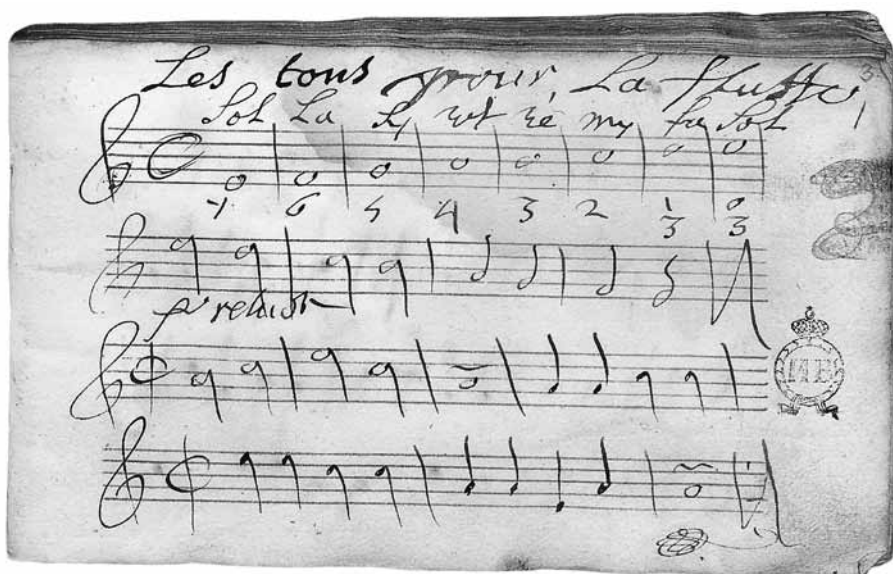 Les tons pour La fluste
3
Sol La Sy ut ré my fa sol
7 6 5 4 3 2 1 0
3 3
prelude